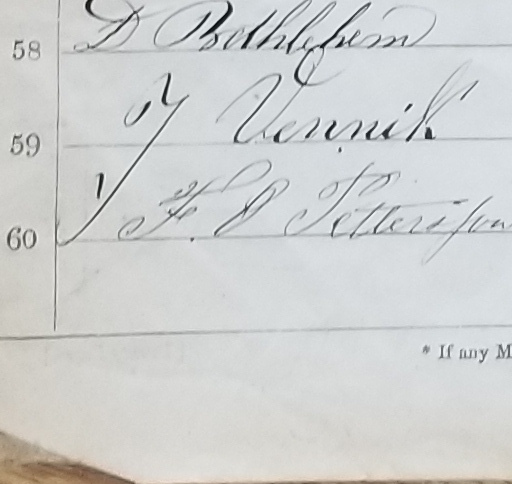 58 D Bethlehem
59 Y Vennik
60 F. P Petterisson
* If any M